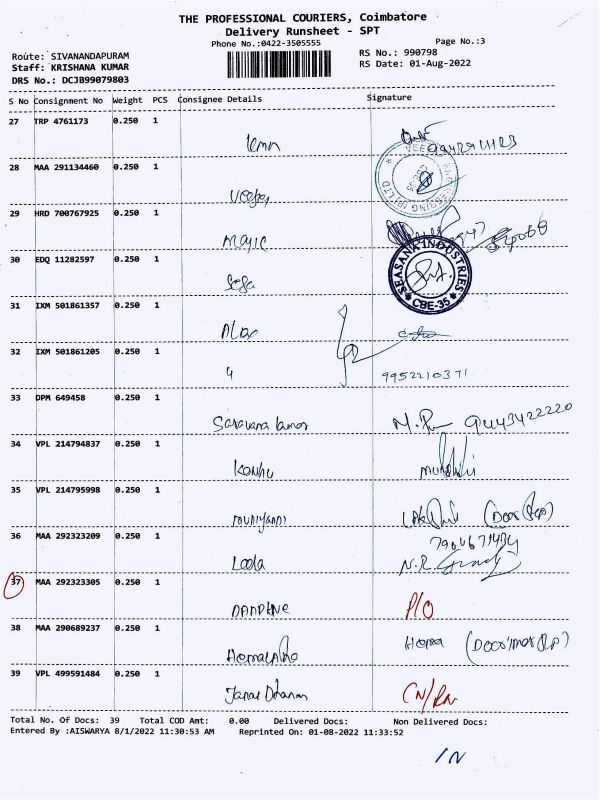 THE PROFESSIONAL COURIERS, Coimbatore
Delivery Runsheet - SPT
Phone No.:0422-3505555
Page No.:3
Route: SIVANANDAPURAM
RS No.: 990798
Staff: KRISHANA KUMAR
RS Date: 01-Aug-2022
DRS No.: DCJB99079803
S No Consignment No Weight PCS Consignee Details Signature
27 TRP 4761173 0.250 1
28 MAA 291134460 0.250 1
29 HRD 700767925 0.250 1
Magic
30 EDQ 11282597 0.250 1
SEASANA INDUSTRIES
CBE-35
31 IXM 501861357 0.250 1
Alax
32 IXM 501861205 0.250 1
9952210371
33 DPM 649458 0.250 1
Saravana kumar
9443422220
34 VPL 214794837 0.250 1
35 VPL 214795998 0.250 1
36 MAA 292323209 0.250 1
Leela
37 MAA 292323305 0.250 1
DAAPHNE P/O
38 MAA 290689237 0.250 1
Hemalatha Hema
39 VPL 499591484 0.250 1
Total No. Of Docs: 39 Total COD Amt: 0.00 Delivered Docs: Non Delivered Docs:
Entered By :AISWARYA 8/1/2022 11:30:53 AM Reprinted On: 01-08-2022 11:33:52
IN